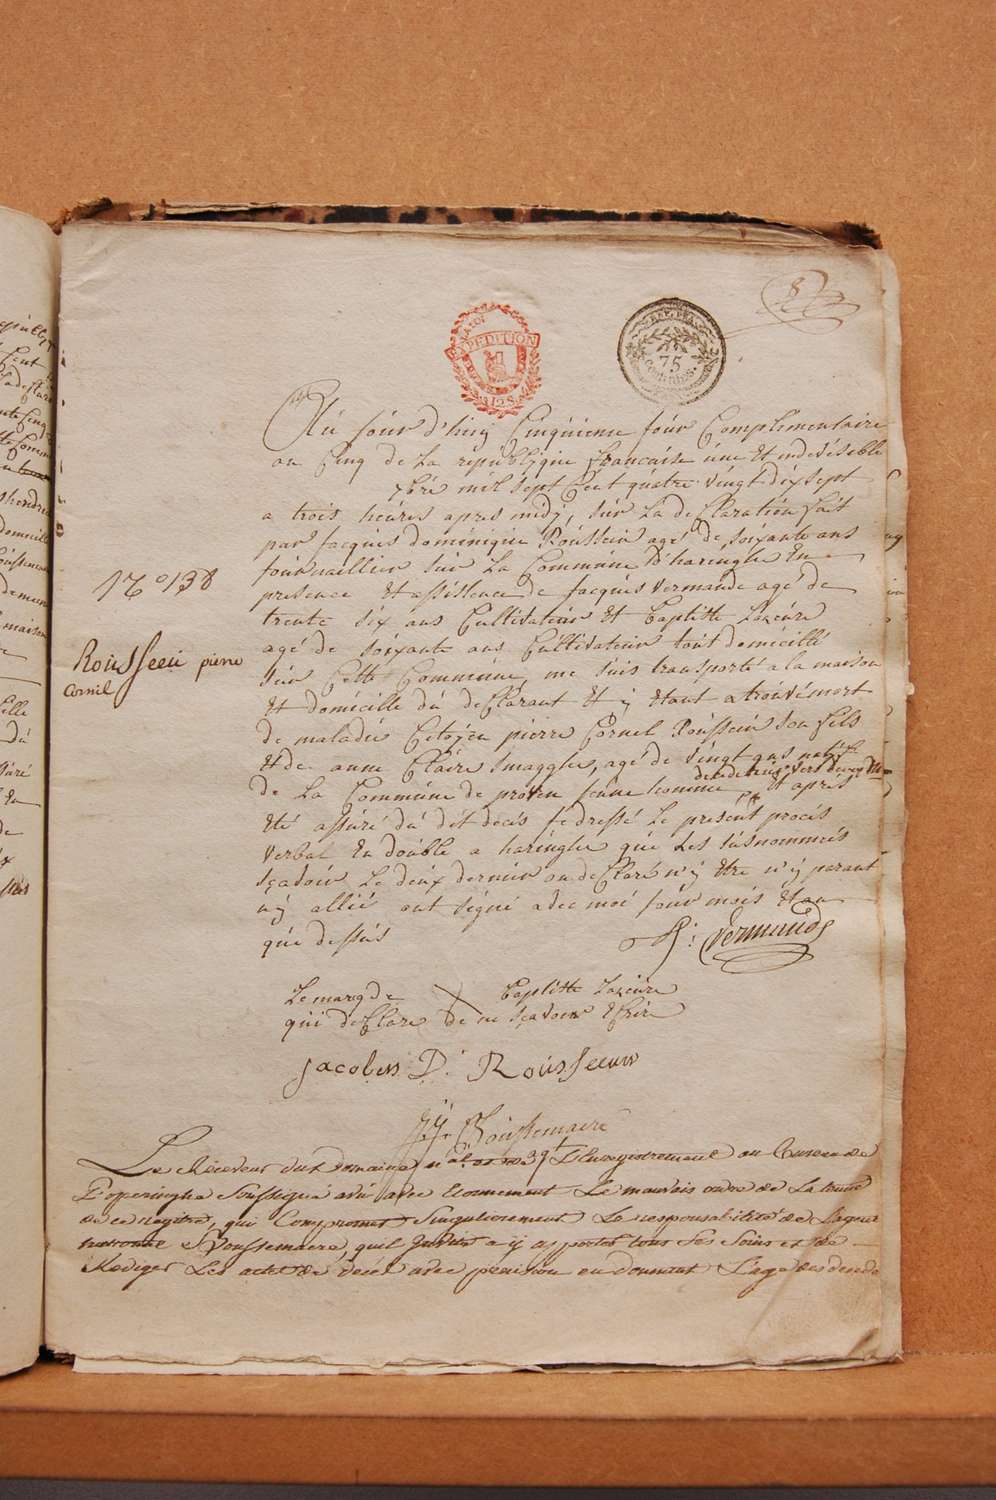 EXPEDITION
3128
REP. FRA.
75
CENTIMES.
Au jour d'huy Cinquieme jour Complimentaire
an Cinq de La république francaise une Et indivisible
7bre mil sept Cent quatre vingt dix sept
a trois heures apres midy, sur La declaration fait
par Jacques dominique Rousseeu agé de soixante ans
journaillier sur La Commune D'haringhe En
presence Et assistence de Jacques vermande agé de
trente six ans Cultivateur Et Baptiste
agé de soixante ans Cultivateur tout domécillé
sur Cette Commune, me suis transporté a la maison
Et domécille du declarant Et y Etant a trouvé mort
de maladie Citoyen pierre Cornel Rousseeu son fils
Et de anne Claire Smagghe, agé de vingt ans natif
de La Commune de proven jeune homme Et apres
Eté assuré du dit decés je dressé Le present procés
verbal En double a haringhe que Les susnommés
sçavoir Le deux dernier on declaré n'y Etre n'y parant
n'y allié ont signé avec moi jour mois Et an
que dessus
N.º 138
Rousseeu pierre
Cornil
J: Vermande
Le marq de X Baptiste
qui declare de ne sçavoir Ecrire
Jacobus D. Rousseeuw
Boussemaire
Le Receveur du Domaine national et de L'Enregistrement au Bureau de
Poperinghe Soussigné a vu avec Etonnement Le mauvais ordre de La tenue
de ce registre, qui Compromet Singulierement La responsabilité de L'agent
nationale Boussemaere, qu'il a y apporter tous Ses Soins et de
Rediger Les actes de decés avec précision en donnant L'age des